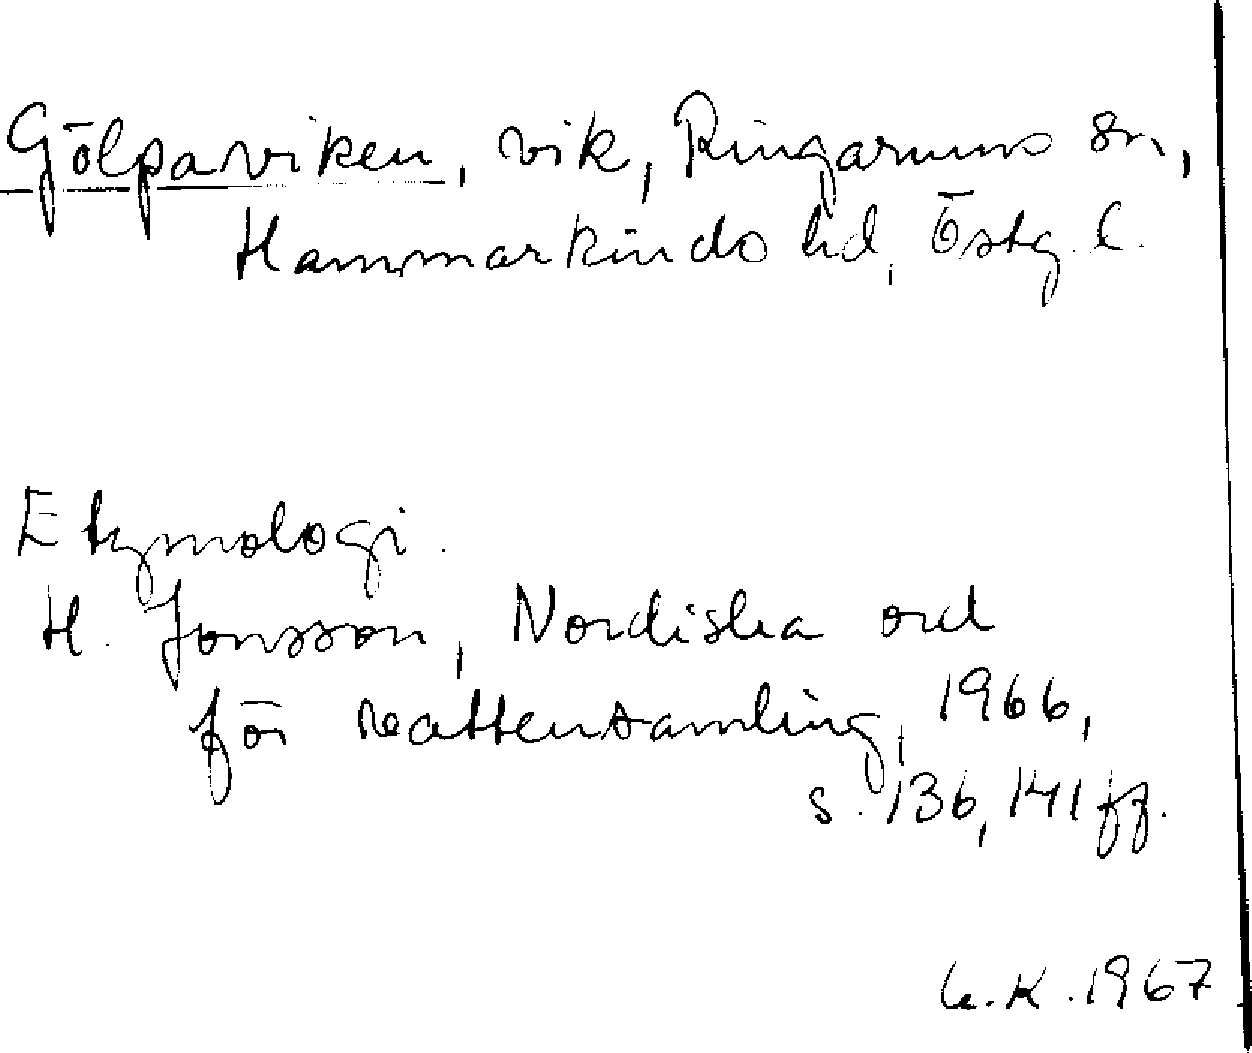 Gölpaviken, vik, Ringarums sn,
Hammarkinds hd, Östg. l.
Etymologi.
H. Jonsson, Nordiska ord
för vattensamling, 1966,
s. 136, 141 ff.
K. 1967